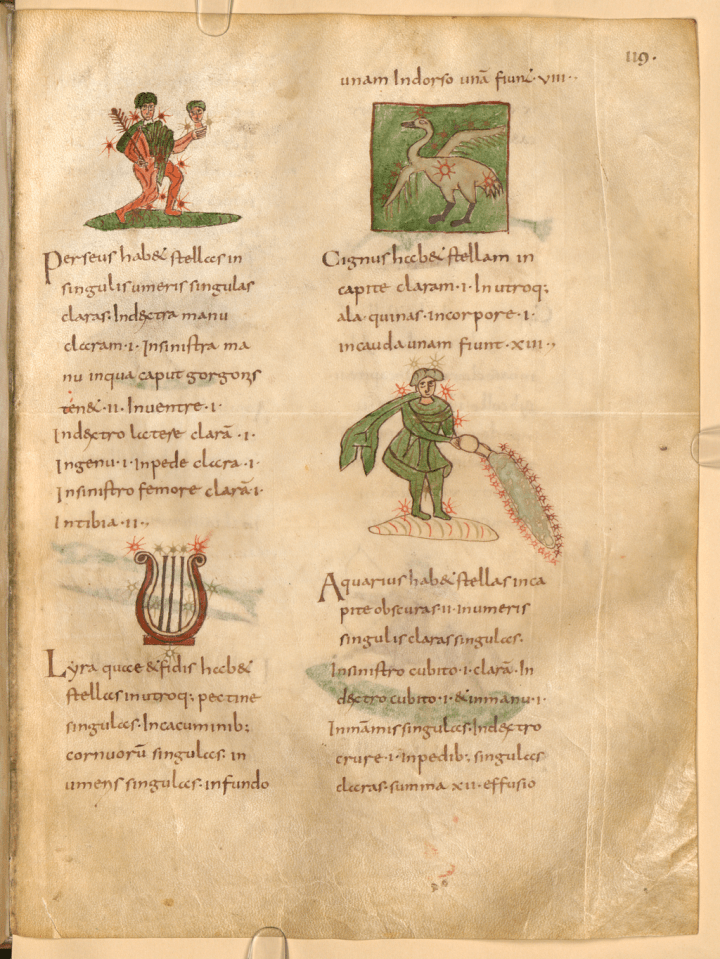 119.
Perseus habet stellas in
singulis umeris singulas
claras. Indextra manu
claram ·i· Insinistra ma
nu inqua caput gorgonis
tenet ·ii· Inventre ·i·
Indextro latere clarā ·i·
Ingenu ·i· Inpede clara ·i·
Insinistro femore clarā ·i·
Intibia ·ii·,
Lyra quae & fidis habet
stellas inutroq; pectine
singulas. Incacuminib;
cornuorū singulas. in
umeris singulas. infundo
unam Indorso unā fiunt ·viii·,
Cignus habet stellam in
capite claram ·i· In utroq;
ala quinas · incorpore ·i·
incauda unam fiunt · xiii·,
Aquarius habet stellas inca
pite obscuras ·ii· inumeris
singulis claras singulas.
Insinistro cubito ·i· clarā. In
dextro cubito ·i· & inmanu ·i·
Inmāmis singulas. Indextro
crure ·i· Inpedib; singulas
claras. summa xii · effusio